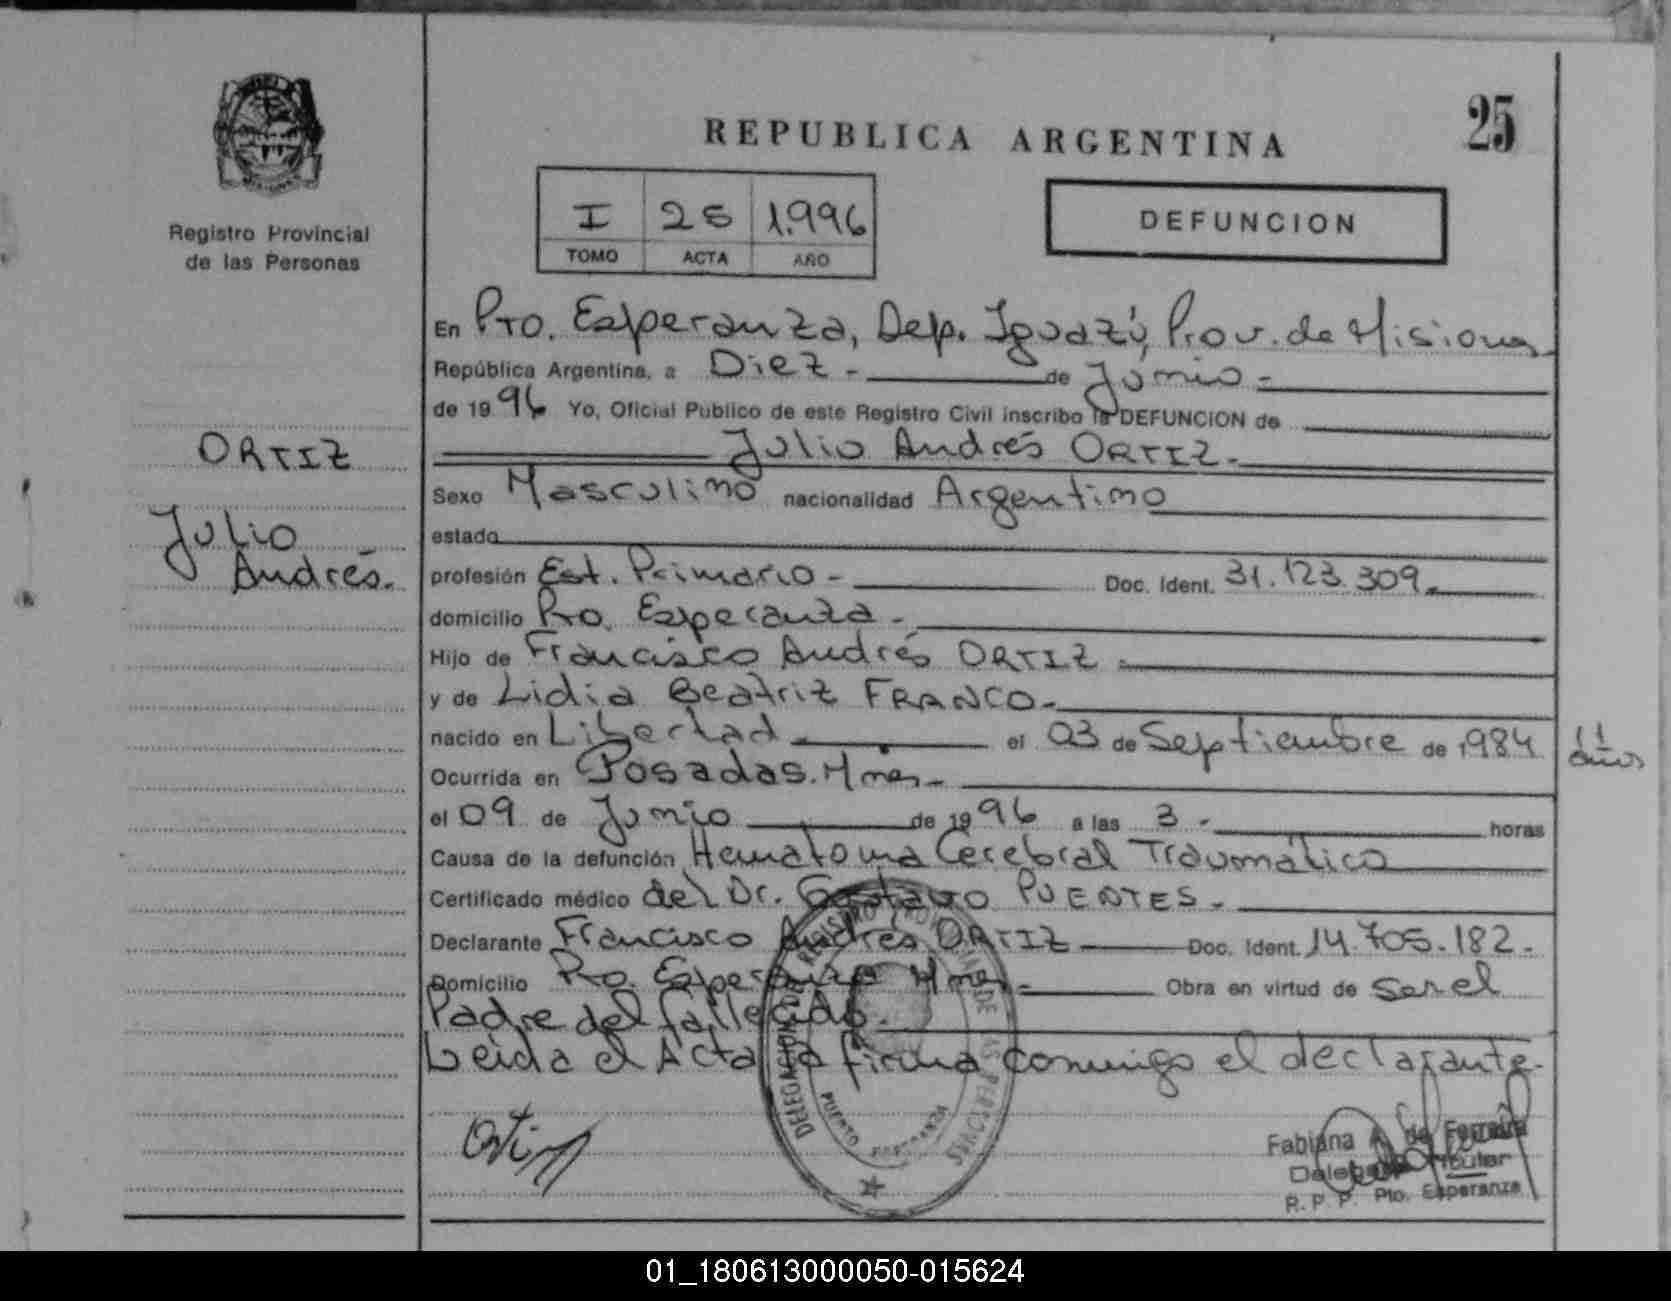 REPUBLICA ARGENTINA
25
Registro Provincial
de las Personas
I 25 1.996
TOMO ACTA AÑO
DEFUNCION
ORTIZ
Julio
Andrés.
En Pto. Esperanza, Dep. Iguazú, Prov. de Misiones
República Argentina, a Diez - de Junio -
de 1996 Yo, Oficial Publico de este Registro Civil inscribo la DEFUNCION de
Julio Andrés ORTIZ.-
Sexo Masculino nacionalidad Argentino
estado
profesión Est. Primario - Doc. Ident. 31.123.309.
domicilio Pto. Esperanza -
Hijo de Francisco Andrés ORTIZ -
y de Lidia Beatriz FRANCO -
nacido en Libertad el 03 de Septiembre de 1984 11 años
Ocurrida en Posadas. Mnes -
el 09 de Junio de 1996 a las 3 - horas
Causa de la defunción Hematoma Cerebral Traumático
Certificado médico del Dr. Gustavo PUENTES -
Declarante Francisco Andrés ORTIZ Doc. Ident. 14.705.182.-
Domicilio Pto. Esperanza Mnes - Obra en virtud de ser el
Padre del fallecido.
Leida el Acta la firma conmigo el declarante.-
DELEGACION DEL REGISTRO PROVINCIAL DE LAS PERSONAS
PUERTO ESPERANZA
Fabiana A. de Ferreira
Titular
R. P. P. Pto. Esperanza
01_180613000050-015624